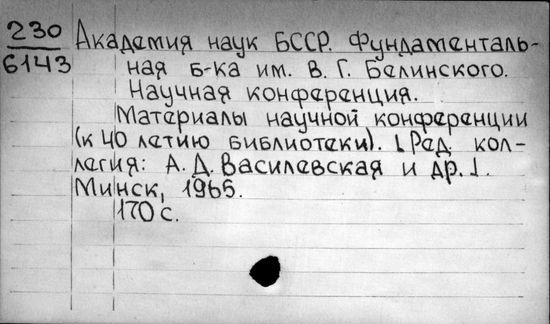 230
6143
Академия наук БССР. Фундаменталь-
ная б-ка им. В. Г. Белинского.
Научная конференция.
Материалы научной конференции
(к 40 летию библиотеки). [Ред. кол-
легия: А. Д. Василевская и др.].
Минск, 1965.
170 с.